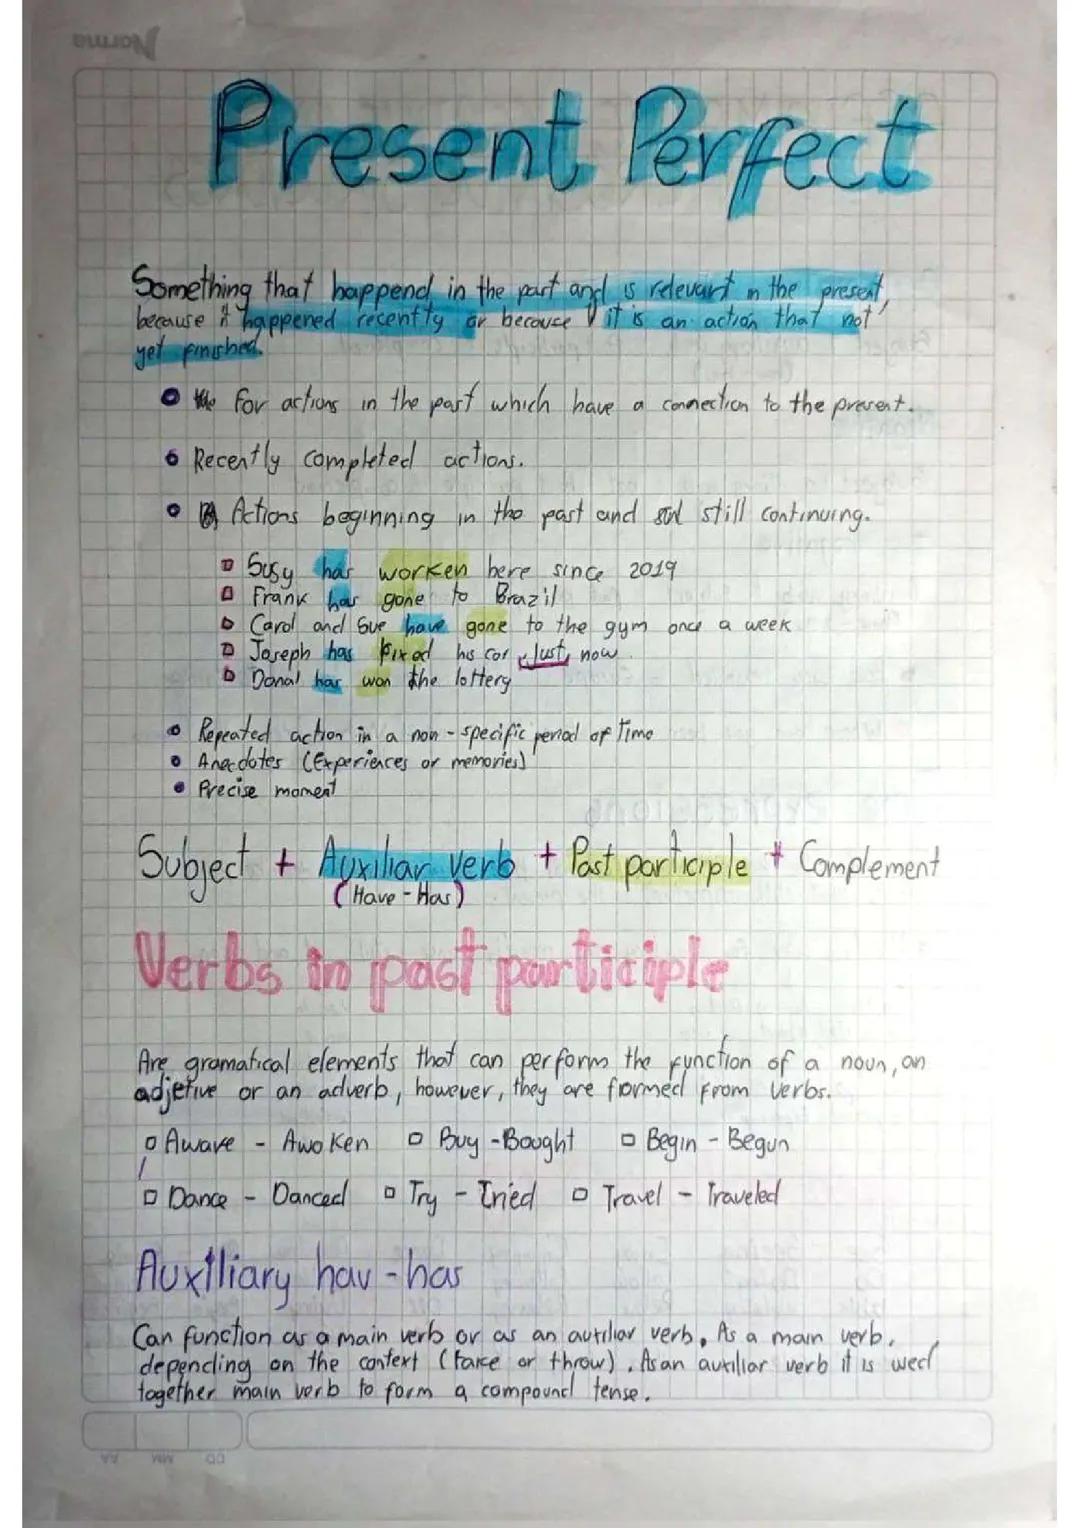 Norma
Present Perfect
Something that happend in the past and is relevant in the present,
because it happened recently or because it is an action that not
yet finished.
for actions in the past which have a connection to the present.
Recently completed actions.
Actions beginning in the past and still continuing.
Susy has worken here since 2019
Frank has gone to Brazil
Carol and Sue have gone to the gym once a week
Joseph has fixed his car Just now.
Danal has won the lottery
Repeated action in a non-specific period of time
Anecdotes (Experiences or memories)
Precise moment
Subject + Auxiliar verb + Past participle + Complement
(Have - Has)
Verbs in past participle
Are gramatical elements that can perform the function of a noun, an
adjetive or an adverb, however, they are formed from verbs.
Aware - Awoken Buy - Bought Begin - Begun
Dance - Danced Try - Tried Travel - Traveled
Auxiliary hav - has
Can function as a main verb or as an auxiliar verb. As a main verb,
depending on the context (take or throw). As an auxiliar verb it is used
together main verb to form a compound tense.
DD MM AA